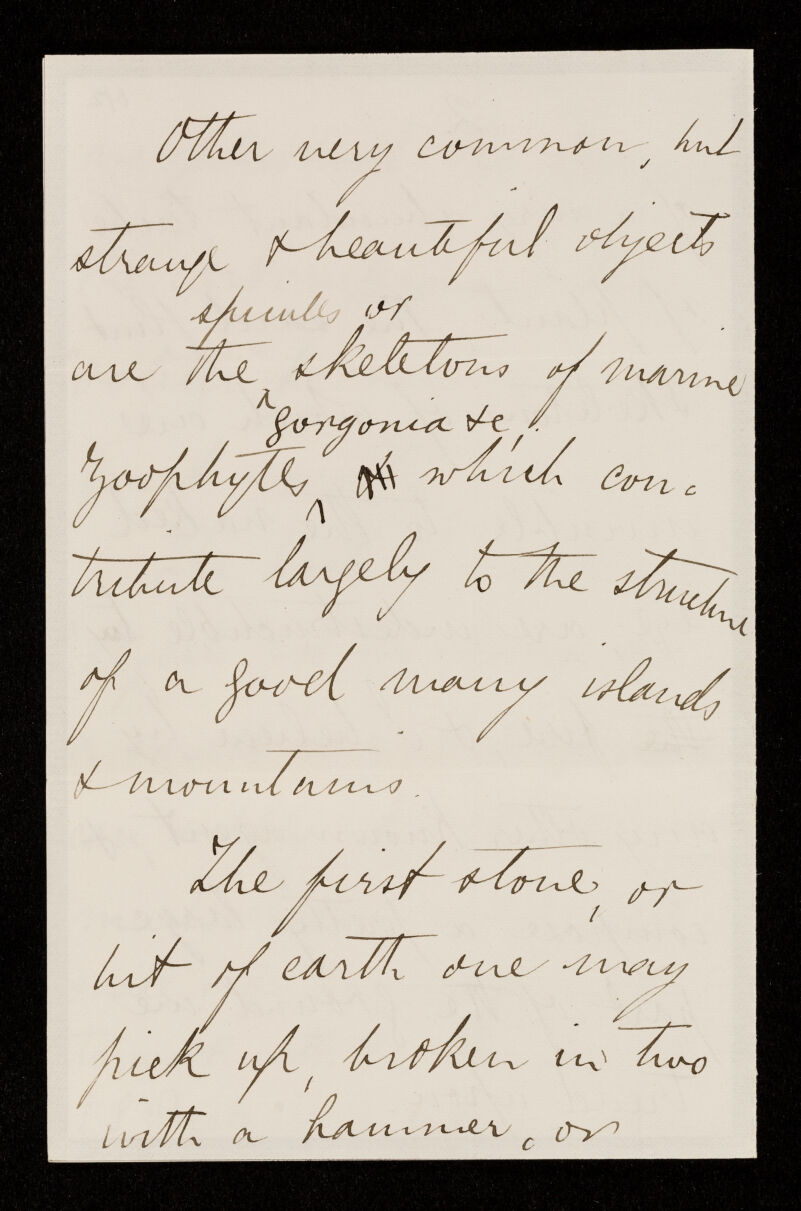 Other very common, but
strange & beautiful objects
spicules or
are the ^ skeletons of marine
gorgonia &c,
Zoophytes, ^ which con-
tribute largely to the structure
of a good many islands
& mountains.
The first stone, or
bit of earth one may
pick up, broken in two
with a hammer, or